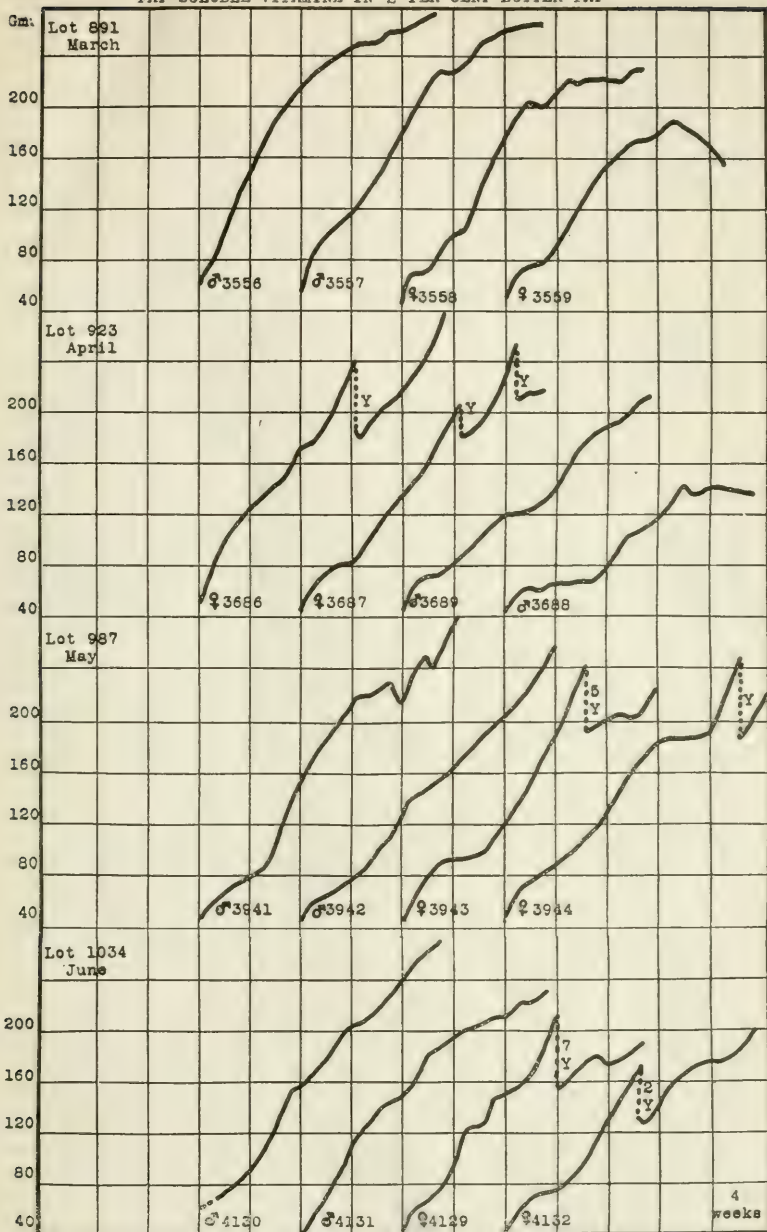 Gm.
Lot 891
March
200
160
120
80
40
♂3556
♂3557
♀3558
♀3559
Lot 923
April
200
160
120
80
40
Y
Y
Y
♀3686
♀3687
♂3689
♂3688
Lot 987
May
200
160
120
80
40
5
Y
Y
♂3941
♂3942
♀3943
♀3944
Lot 1034
June
200
160
120
80
40
7
Y
2
Y
♂4130
♂4131
♀4129
♀4132
4
weeks